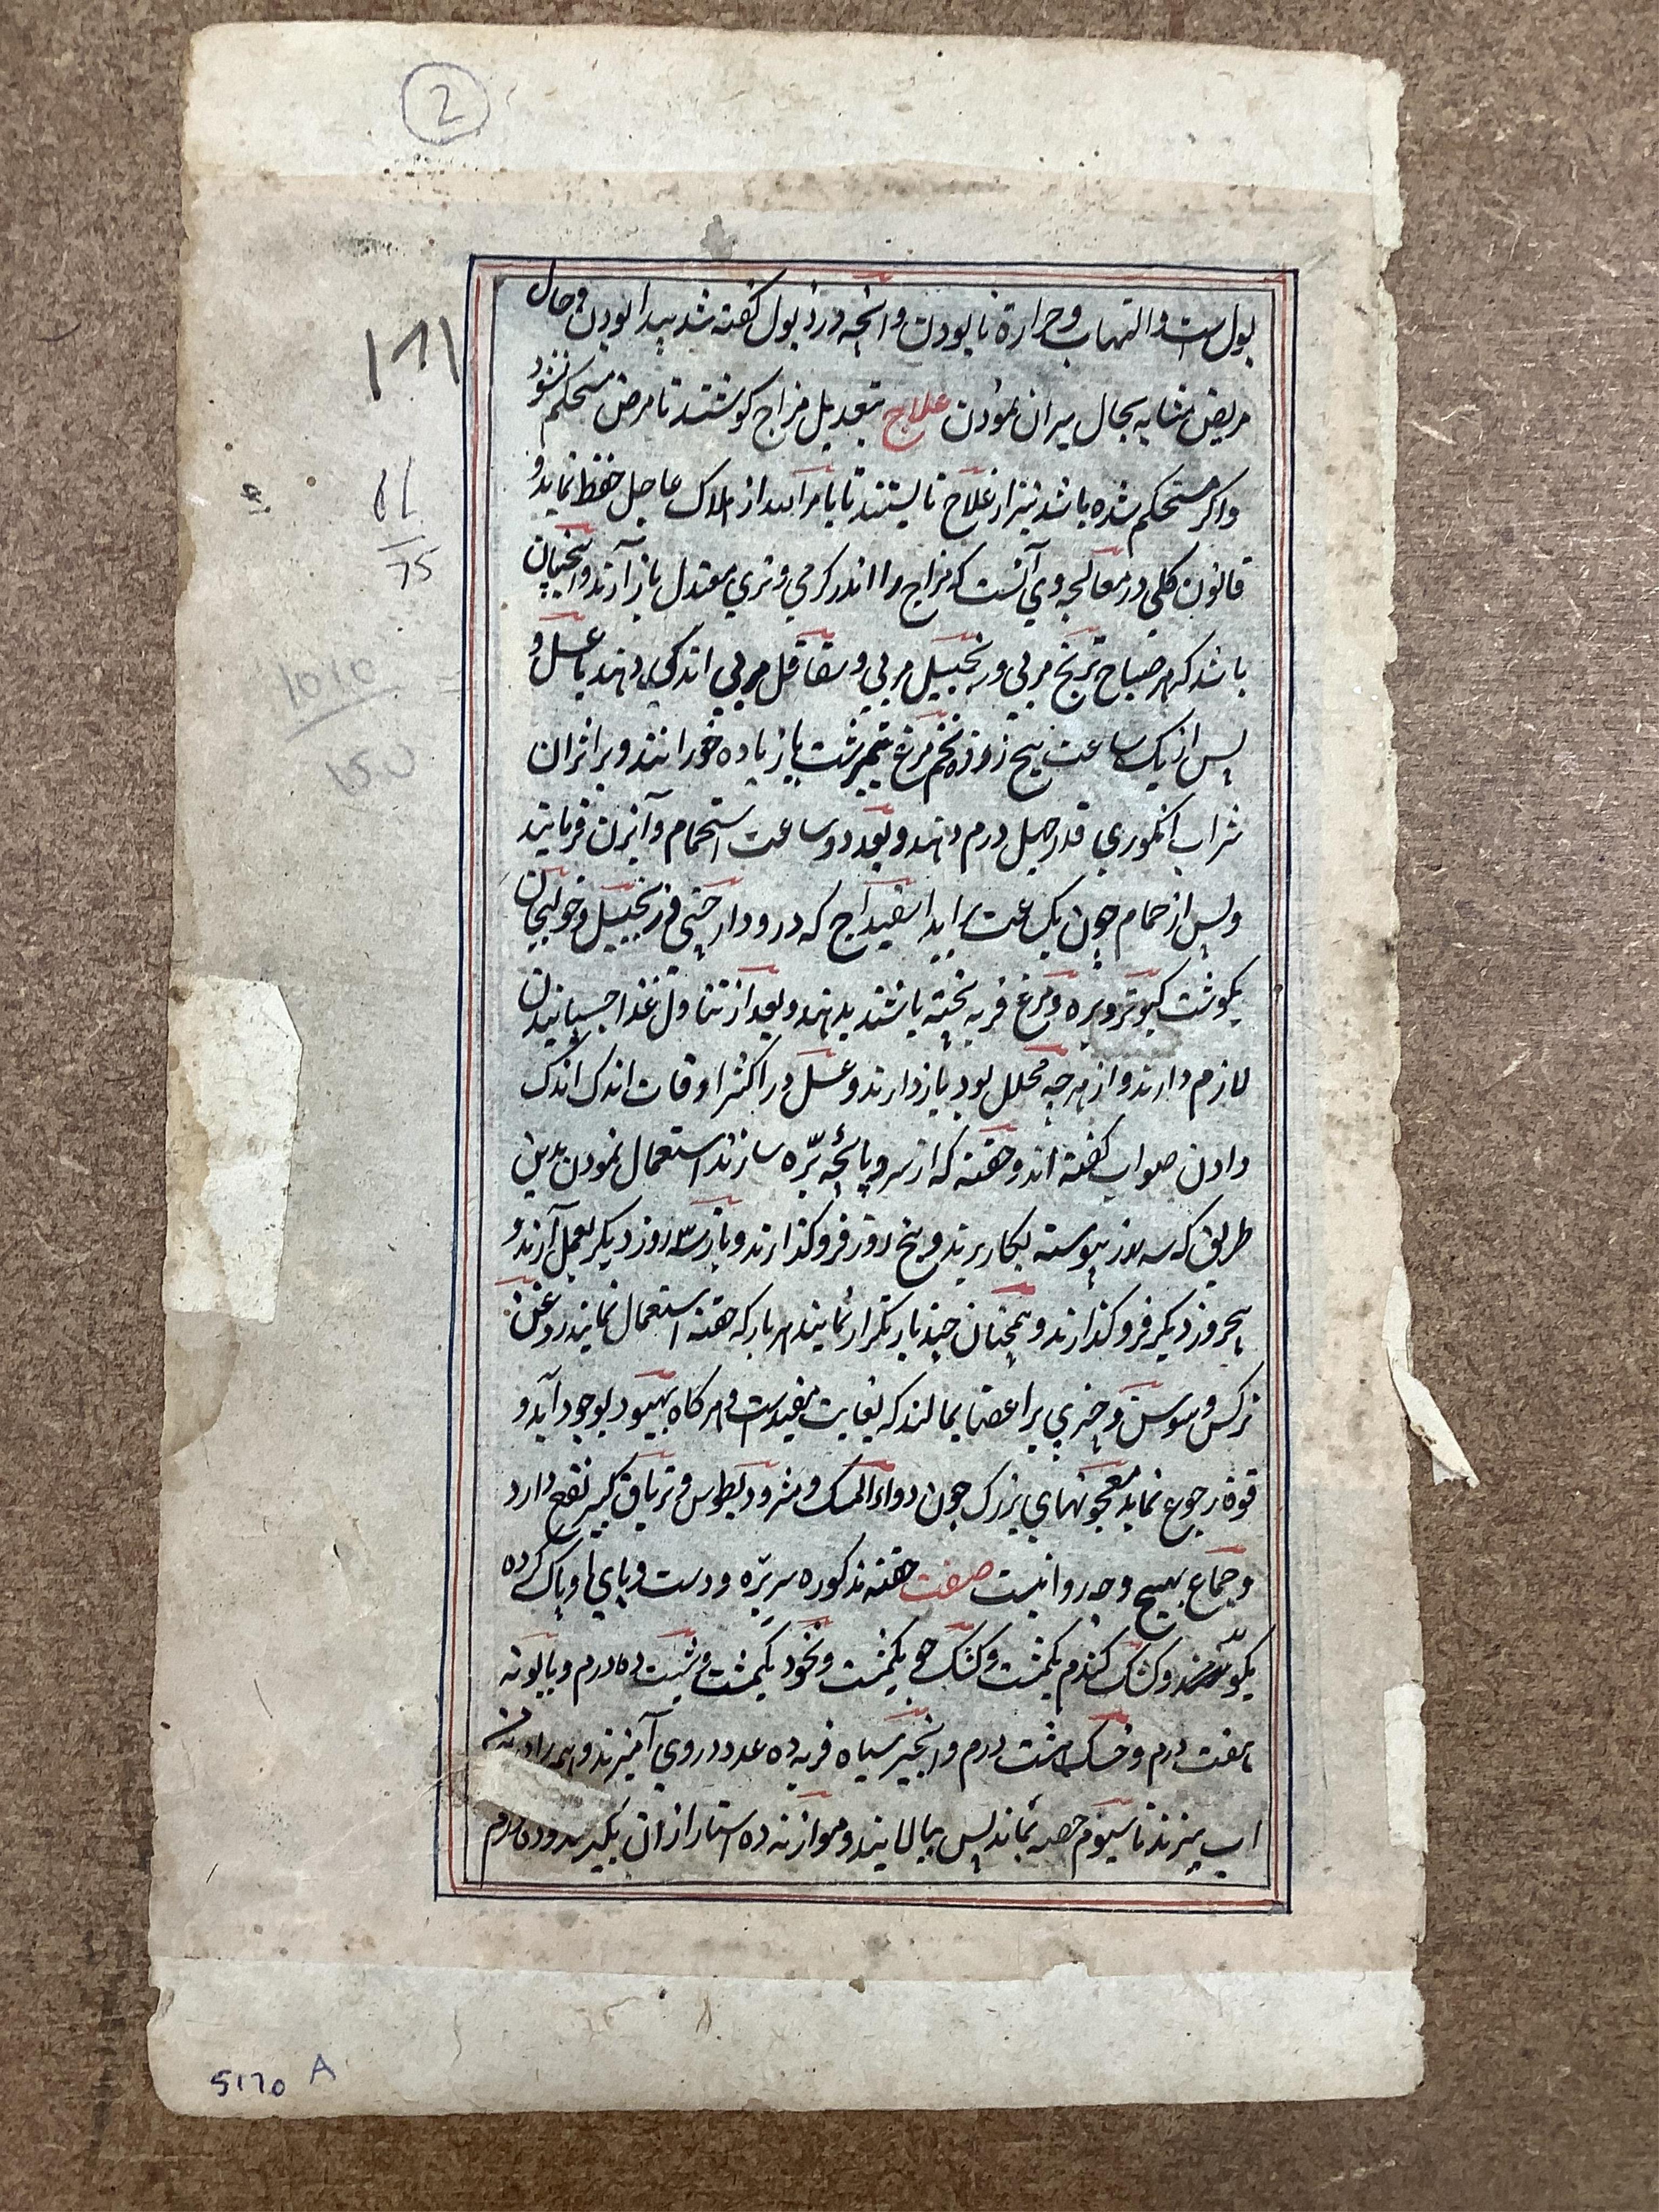 2
بول است والتهاب و حرارة نابودن و انچه در ذبول گفته شد پیدا بودن و حال
مریض مشابه بحال پیران نمودن علاج بتعدیل مزاج کوشند تا مرض مستحکم نشود
واکر مستحکم شده باشد نیز از علاج نایستند تا از هلاک عاجل حفظ نماید و
قانون کلی در معالجه وی آنست که مزاج را اندر کرمی و تری معتدل باز آرند و انچنان
باشد که هر صباح ترنج مربی و زنجبیل مربی و شقاقل مربی اندکی دهند با عسل و
پس از یک ساعت پنج زرده تخم مرغ نیمبرشت یا زیاده خورانند و بر اثر ان
شراب انکوری قدر چهل درم دهند و بعد دو ساعت استحمام و آبزن فرمایند
و پس از حمام چون یک ساعت براید اسفیداج که در و دارچینی و زنجبیل و خولنجان
بکوشت کبوتر و بره و مرغ فربه پخته باشند بدهند و بعد از تناول غذا خسپانیدن
لازم دارند و از هر چه محلل بود باز دارند و عسل در اکثر اوقات اندک اندک
دادن صواب کفته اند و حقنه که از سر و پائچه برّه سازند استعمال نمودن بدین
طریق که سه روز پیوسته بکار برند و پنج روز فرو کذارند و باز سه روز دیکر بعمل آرند و
پنجروز دیکر فرو کذارند و همچنان چند بار تکرار نمایند هر بار که حقنه استعمال نمایند روغن
نرکس و سوسن و خیری بر اعضا بمالند که بغایت مفیدست و هر کاه بهبود بوجود آید و
قوة رجوع نماید معجونهای بزرک چون دواء المسک و مثرودیطوس و تریاق کبیر نفع دارد
و جماع بهیچ وجه روا نیست صفت حقنه مذکوره سر برّه و دست و پای او پاک کرده
بکوبند و کشک کندم یکمشت و کشک جو یکمشت و نخود یکمشت و شبت ده درم و بابونه
هفت درم و خسک هشت درم و انجیر سیاه فربه ده عدد در وی آمیزند و همه را در
اب بپزند تا سیوم حصه بماند پس بپالایند و موازنه ده استار از ان بکیرند و ده درم
۱۸۱
75
1010
650
5170 A